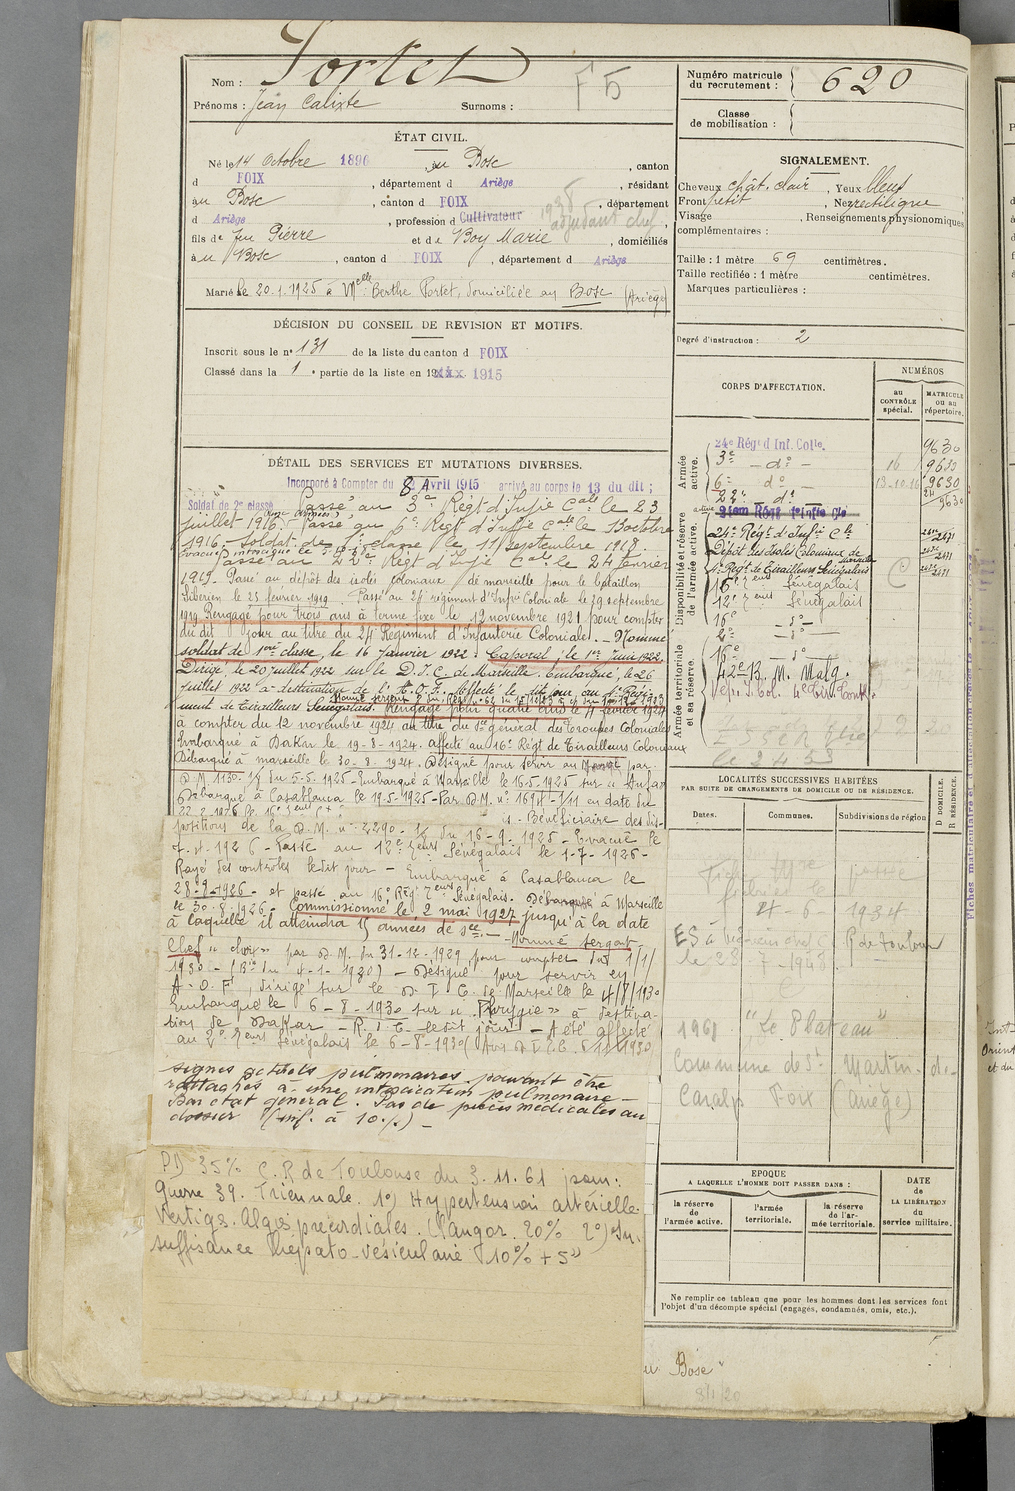 Nom : Portet
F 5
Prénoms : Jean Calixte Surnoms :
ÉTAT CIVIL.
Né le 14 Octobre 1896, au Bosc, canton
d FOIX, département d Ariège, résidant
au Bosc, canton d FOIX, département
d Ariège, profession d Cultivateur 1938 adjudant chef,
fils de feu Pierre et de Boy Marie, domiciliés
à u Bosc, canton d FOIX, département d Ariège
Marié le 20.1.1925 à Melle Berthe Portet, domiciliée au Bosc (Ariège)
DÉCISION DU CONSEIL DE REVISION ET MOTIFS.
Inscrit sous le n° 131 de la liste du canton d FOIX
Classé dans la 1e partie de la liste en 1915
DÉTAIL DES SERVICES ET MUTATIONS DIVERSES.
Incorporé à Compter du 8 Avril 1915 arrivé au corps le 13 du dit ;
Soldat de 2e classe Passé au 3e Régt d'Infie Cale le 23
juillet 1916. Passé au 6e Régt d'Infie Cale le 13 octobre
1916 - soldat de 1e classe le 11 septembre 1918.
Passé au 22e Régt d'Infie Cale le 24 février
1919. Passé au dépôt des isolés coloniaux de marseille pour le bataillon
Sibérien le 25 février 1919. Passé au 21e régiment d'Infrie Coloniale le 29 septembre
1919 Rengagé pour trois ans à terme fixe le 12 novembre 1921 pour compter
du dit jour au titre du 24e Régiment d'Infanterie Coloniale. - Nommé
soldat de 1ère classe, le 16 Janvier 1922. Caporal, le 1er Juin 1922.
Dirigé, le 20 juillet 1922 sur le D.I.C. de Marseille. Embarqué, le 26
Juillet 1922 à destination de l'A.O.F. Affecté le dit jour au 1er Régi-
ment de Tirailleurs Sénégalais. Rengagé pour quatre ans le 4 février 1924
à compter du 12 novembre 1924 au titre du Sce général des Troupes Coloniales
Embarqué à Dakar le 19-8-1924. affecté au 16e Régt de Tirailleurs Coloniaux
Débarqué à marseille le 30-8-1924. Désigné pour servir au Maroc par
D.M. 1130. 1/8 du 5-5-1925 - Embarqué à Marseille le 15-5-1925 sur "Anfa"
Débarqué à Casablanca le 19-5-1925 - Par D.M. n° 1698-1/11 en date du
- Bénéficiaire des dis-
positions de la D.M. n° 2290- 1/8 du 16-9-1925 - Evacué le
7-4-1926 - Passé au 12e Tieurs Sénégalais le 1-7-1926 -
Rayé des controles ledit jour - Embarqué à Casablanca le
28-8-1926 - et passe au 16e Rég Tieurs Sénégalais. Débarqué à Marseille
le 30-8-1926 - Commissionné le 2 mai 1927 jusqu'à la date
à laquelle il atteindra 15 années de Sce. - Nommé sergent-
Chef "choix" par D.M. du 31-12-1929 pour compter du 1/1/
1930 - (Bin du 4-1-1930) - Désigné pour servir en
A-O.F., dirigé sur le D I C. de Marseille le 4/8/1930
Embarqué le 6-8-1930 sur "Brazza" à destina-
tion de Dakar - R.D.C. ledit jour - A été affecté
au 2e Tieurs Sénégalais le 6-8-1930
signes actuels pulmonaires pouvant être
rattachés à une intoxication pulmonaire -
Bon état général. Pas de pièces médicales au
dossier (inf. à 10%) -
PD 35% C.R de Toulouse du 3.11.61 pour :
Guerre 39. Triennale. 1°) Hypertension artérielle.
Vertiges. Algies précordiales. Angor. 20% 2°) In-
suffisance hépato-vésiculaire 10% + 5"
Numéro matricule du recrutement : 620
Classe de mobilisation :
SIGNALEMENT.
Cheveux chât. clair, Yeux bleus
Front petit, Nez rectiligne
Visage, Renseignements physionomiques
complémentaires :
Taille : 1 mètre 69 centimètres.
Taille rectifiée : 1 mètre centimètres.
Marques particulières :
Degré d'instruction : 2
CORPS D'AFFECTATION.
NUMÉROS
au CONTRÔLE spécial.
MATRICULE ou au répertoire.
Armée active.
24e Régt d'Inf. Colle. 9630
3e - do - 16 9630
6e do - 13-10-16 9630
22e - do 9630
Disponibilité et réserve de l'armée active.
21em Régt d'Infie Cle
24e Régt d'Infie Cle
Dépôt des Isolés Coloniaux de Marseille
1er Régt de Tirailleurs Sénégalais
16e Tieurs Sénégalais
12e Tieurs Sénégalais
16e - do -
2e - do -
Armée territoriale et sa réserve.
16e - do -
42e B. M. Malg.
LOCALITÉS SUCCESSIVES HABITÉES
PAR SUITE DE CHANGEMENTS DE DOMICILE OU DE RÉSIDENCE.
Dates. Communes. Subdivisions de région
D DOMICILE. R RÉSIDENCE.
4-6-1934
R de Toulon
le 23-7-1948
1961 "Le Plateau"
Commune de St Martin-de-
Caralp Foix (Ariège)
EPOQUE
A LAQUELLE L'HOMME DOIT PASSER DANS :
la réserve de l'armée active.
l'armée territoriale.
la réserve de l'armée territoriale.
DATE de LA LIBÉRATION du service militaire.
Ne remplir ce tableau que pour les hommes dont les services font
l'objet d'un décompte spécial (engagés, condamnés, omis, etc.).
Bosc"
8/1/20